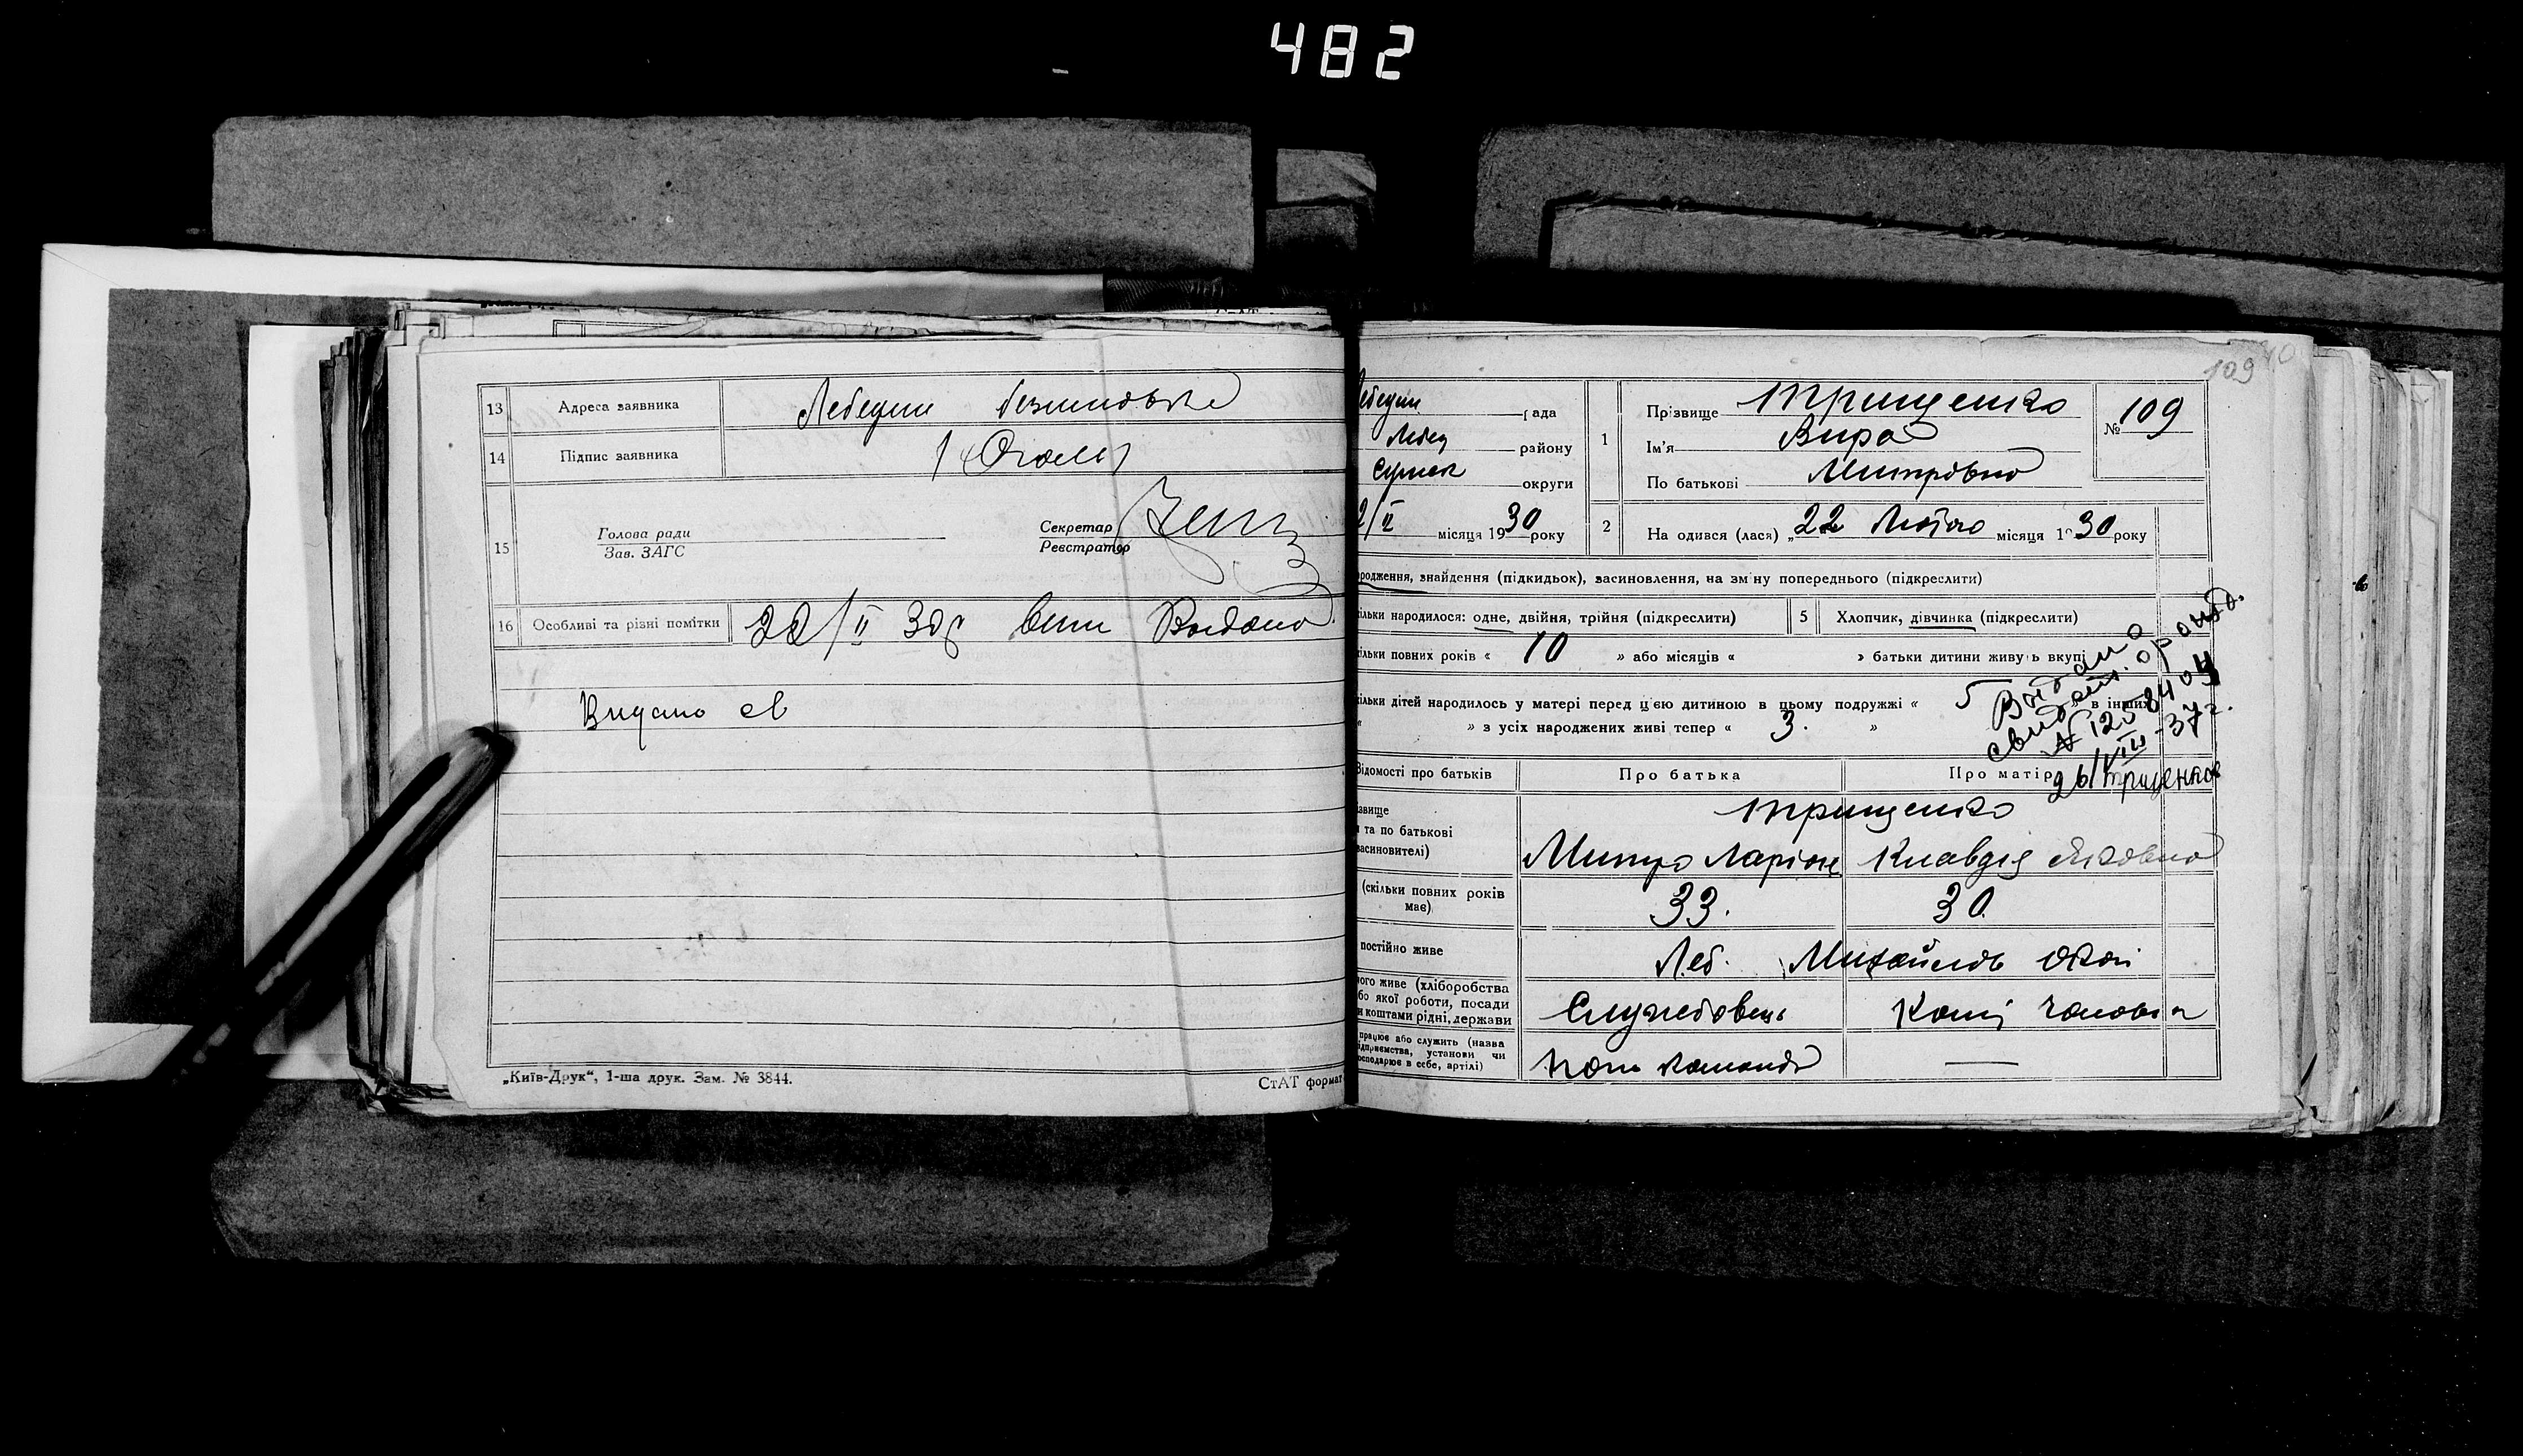 482
13 Адреса заявника Лебедин
14 Підпис заявника
15 Голова ради
Зав. ЗАГС
Секретар
Реєстратор
16 Особливі та різні помітки 22/II 30р
Видано св
„Київ-Друк“, 1-ша друк. Зам. № 3844.
СтАТ формат
109
Лебедин рада
Лебед району
Сумск округи
2/II місяця 1930 року
1 Прізвище Трищенко
Ім'я Вира
По батькові Митровна
№ 109
2 На одився (лася) „22 Лютого місяця 1930 року
родження, знайдення (підкидьок), засиновлення, на зміну попереднього (підкреслити)
ільки народилося: одне, двійня, трійня (підкреслити)
5 Хлопчик, дівчинка (підкреслити)
ільки повних років « 10 » або місяців « » батьки дитини живуть вкупі
ільки дітей народилось у матері перед цією дитиною в цьому подружжі « 5 в інших
« » з усіх народжених живі тепер « 3. »
Выдано
свидет. о рожд.
26/VIII-37 г.
Відомості про батьків Про батька Про матір
звище
та по батькові
засиновителі)
Трищенко
Митро Ларіон Клавдія Яковна
(скільки повних років має) 33. 30.
постійно живе Леб.
ого живе (хліборобства
бо якої роботи, посади
и коштами рідні, держави
Службовець Кошт чоловіка
працює або служить (назва
ідприємства, установи чи
осподарює в себе, артілі)
—